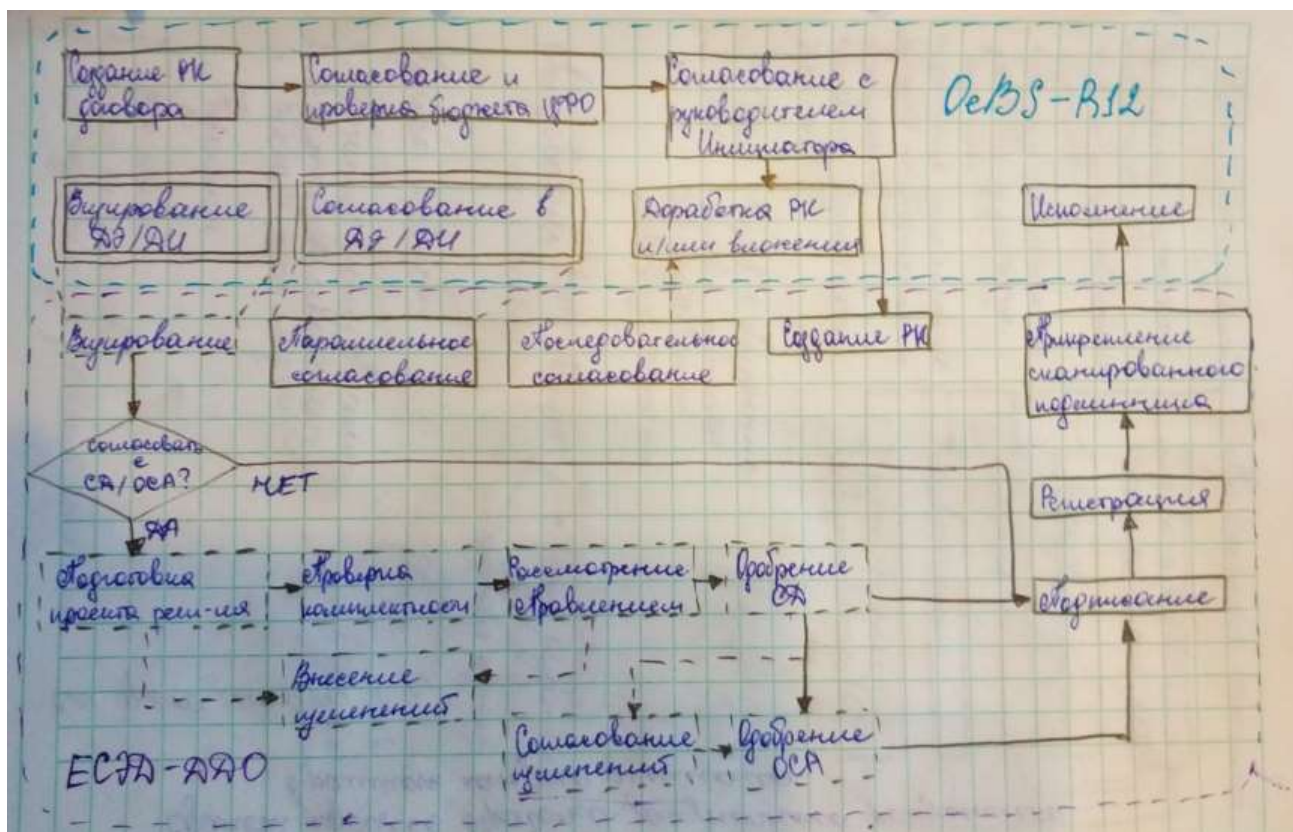 Создание РК
договора
Согласование и
проверка бюджета ЦФО
Согласование с
руководителем
Инициатора
OeBS-R12
Визирование
ДЭ/ДИ
Согласование в
ДЭ/ДИ
Доработка РК
и/или вложений
Исполнение
Визирование
Параллельное
согласование
Последовательное
согласование
Создание РК
Прикрепление
сканированного
подлинника
согласовать
с
СД/ОСА?
НЕТ
Регистрация
ДА
Подготовка
проекта реш-ия
Проверка
комплектности
Рассмотрение
Правлением
Одобрение
СД
Подписание
Внесение
изменений
Согласование
изменений
Одобрение
ОСА
ЕСЭД-ДДО